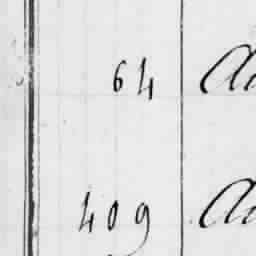 64
409